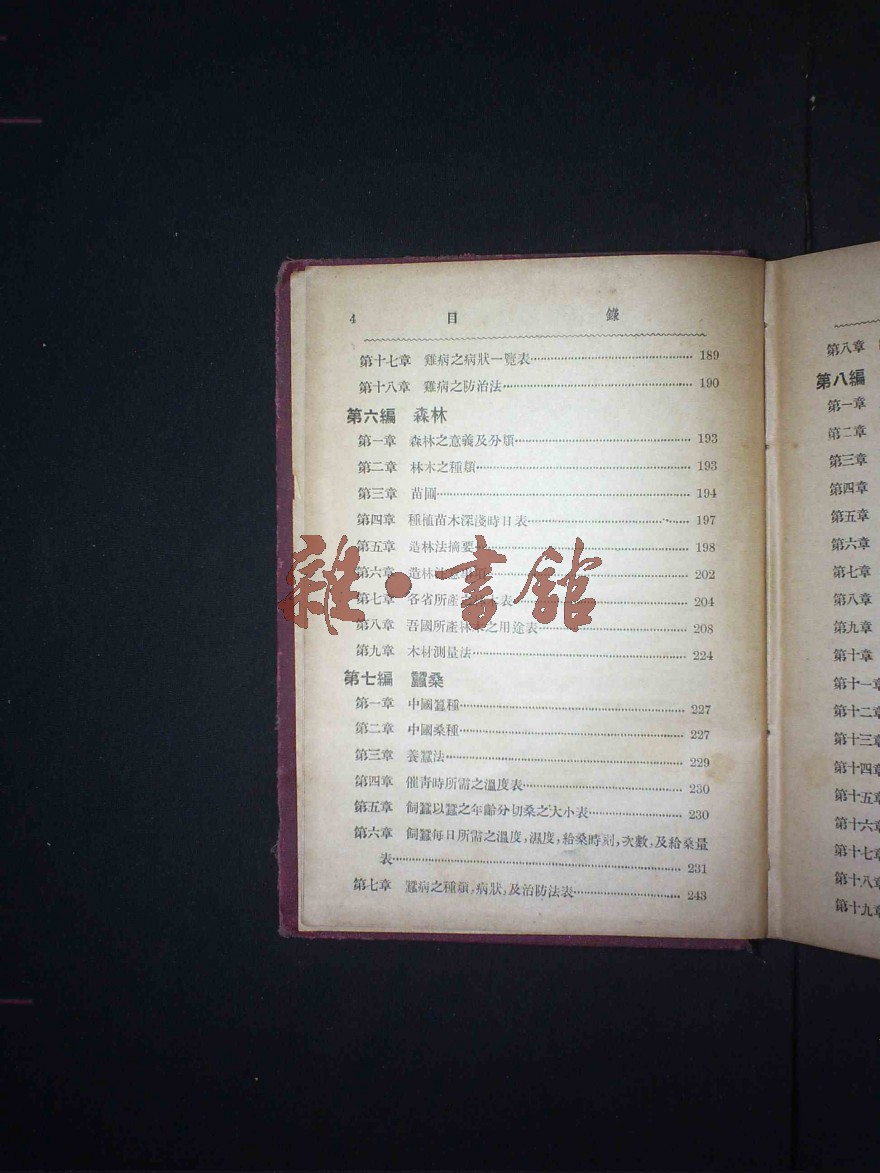 4 目 錄
第十七章 雞病之病狀一覽表 189
第十八章 雞病之防治法 190
第六編 森林
第一章 森林之意義及分類 193
第二章 林木之種類 193
第三章 苗圃 194
第四章 種植苗木深淺時日表 197
第五章 造林法摘要 198
第六章 造林 202
第七章 各省所產 表 204
第八章 吾國所產林木之用途表 208
第九章 木材測量法 224
第七編 蠶桑
第一章 中國蠶種 227
第二章 中國桑種 227
第三章 養蠶法 229
第四章 催青時所需之溫度表 230
第五章 飼蠶以蠶之年齡分切桑之大小表 230
第六章 飼蠶每日所需之溫度,濕度,給桑時刻,次數,及給桑量
表 231
第七章 蠶病之種類,病狀,及治防法表 243
雜·書館
第八章
第八編
第一章
第二章
第三章
第四章
第五章
第六章
第七章
第八章
第九章
第十章
第十一章
第十二章
第十三章
第十四章
第十五章
第十六章
第十七章
第十八章
第十九章